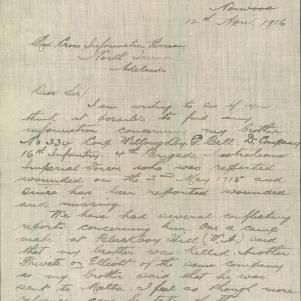 Norwood
12th April 1916
Red Cross Information Bureau
North
Adelaide
Dear Sir!
I am writing to see if you
think it possible to find any
information concerning my brother
No 334 Corp Willoughby P. Bell D Company
16th Infantry. 4th Brigade Australian
Imperial Force who was reported
wounded on the 2nd May 1915 and
since has been reported wounded
and missing.
We have had several conflicting
reports concerning him. One a camp
mate at Blackboy Hill (W.A.) said
that my brother was killed. Another
Private Elliott of the same company
as my brother said that he was
sent to Malta. I feel as though more